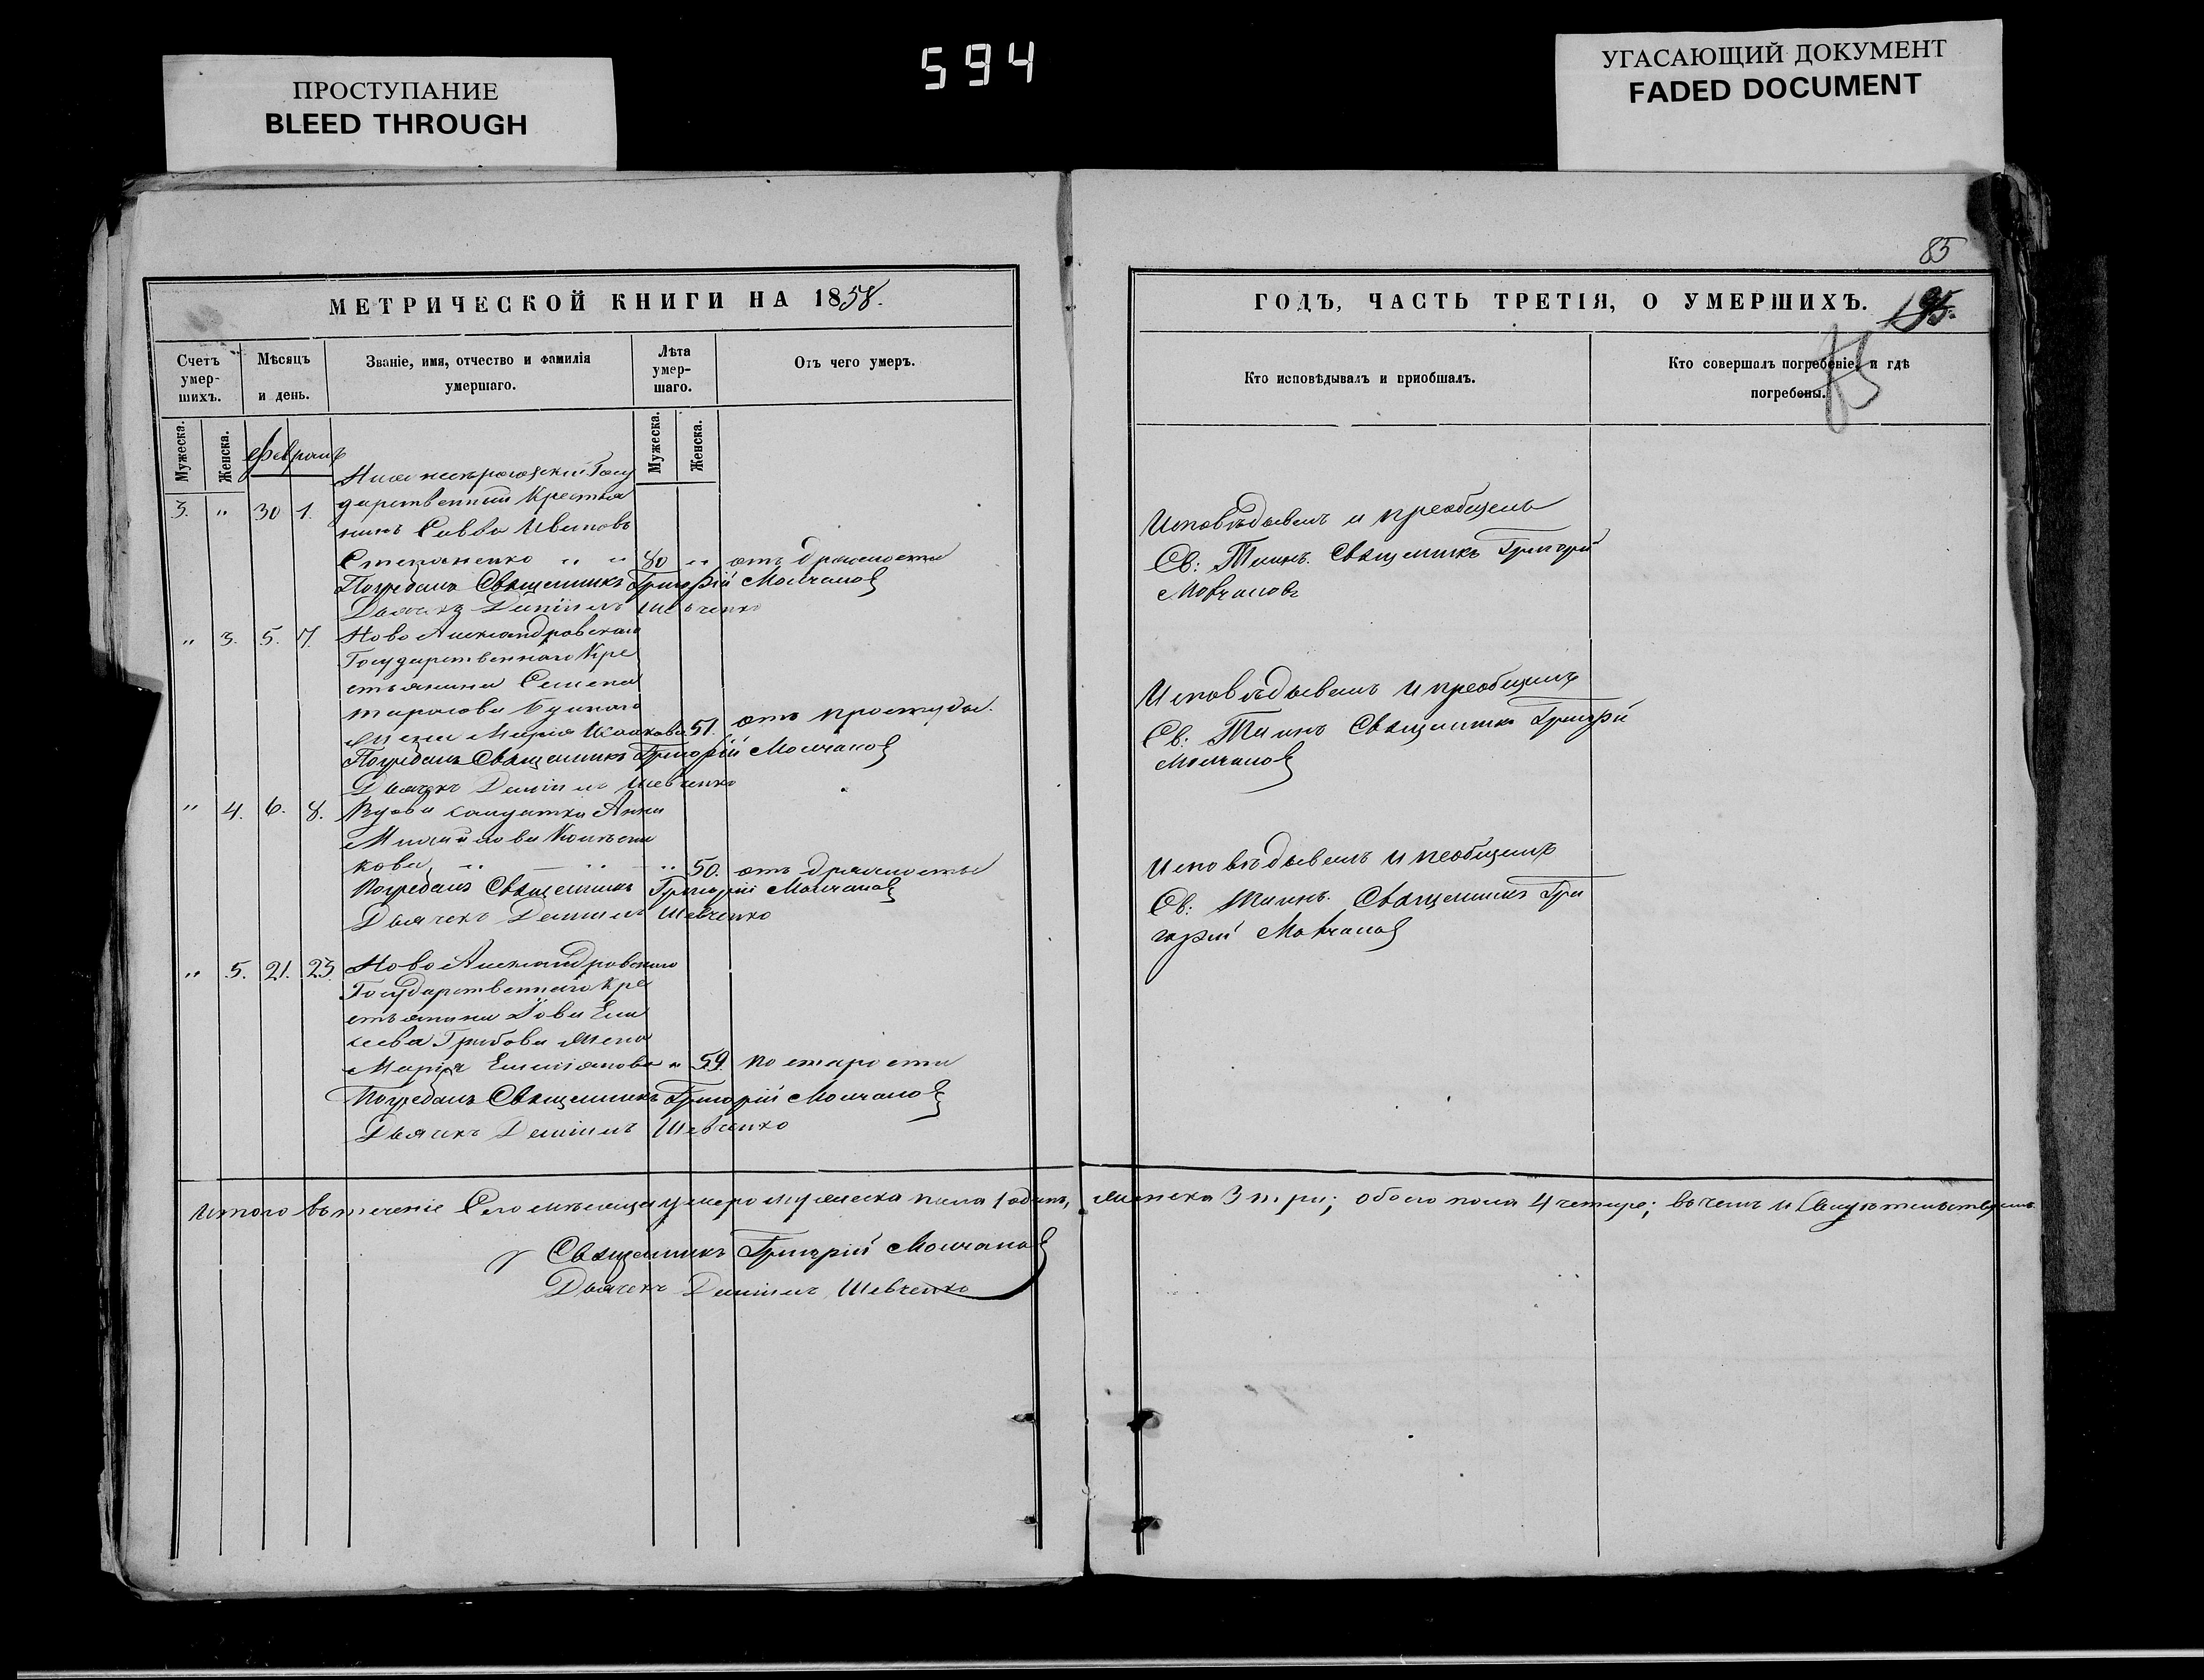 594
ПРОСТУПАНИЕ
BLEED THROUGH
УГАСАЮЩИЙ ДОКУМЕНТ
FADED DOCUMENT
МЕТРИЧЕСКОЙ КНИГИ НА 1858.
Счетъ умер-шихъ.
Мѣсяцъ и день.
Званіе, имя, отчество и фамилія умершаго.
Лѣта умер-шаго.
Отъ чего умеръ.
Мужеска.
Женска.
Февраль
Мужеска.
Женска.
Госу
3. " 30 1. дарственный Крестья
нинъ Савва Ивановъ
Степаненко " " 80 " отъ дряхлости
Погребалъ Священникъ Григорій Молчановъ
Дьячекъ Даніилъ Шевченко
" 3. 5. 7. Ново Александровскаго
Государственнаго Кре
стьянина Семена
Тарасова
жена Марія 51. отъ простуды.
Погребалъ Священникъ Григорій Молчановъ
Дьячекъ Даніилъ Шевченко
" 4. 6. 8. Вдова солдатка Анна
Михайлова Колесни
кова " " " 50. отъ дряхлости
Погребалъ Священникъ Григорій Молчановъ
Дьячекъ Даніилъ Шевченко
" 5. 21. 23. Ново Александровскаго
Государственнаго Кре
стьянина Іова Ели
сеева Грибова жена
Марія Емиліянова " 59. по старости
Погребалъ Священникъ Григорій Молчановъ
Дьячекъ Даніилъ Шевченко
Итого въ теченіе Сего мѣсяца умеро мужеска пола 1 одинъ, женска 3 три; обоего пола 4 четыре; въ чемъ и Свидѣтельствуемъ
Священникъ Григорій Молчановъ
Дьячекъ Даніилъ Шевченко
85
ГОДЪ, ЧАСТЬ ТРЕТІЯ, О УМЕРШИХЪ.
195.
85
Кто исповѣдывалъ и приобщалъ.
Кто совершалъ погребеніе, и гдѣ погребены.
Исповѣдывалъ и преобщалъ
Св: Таинъ. Священникъ Григорій
Молчановъ
Исповѣдывалъ и преобщалъ
Св: Таинъ Священникъ Григорій
Молчановъ
Исповѣдывалъ и преобщалъ
Св: Таинъ. Священникъ Гри
горій Молчановъ